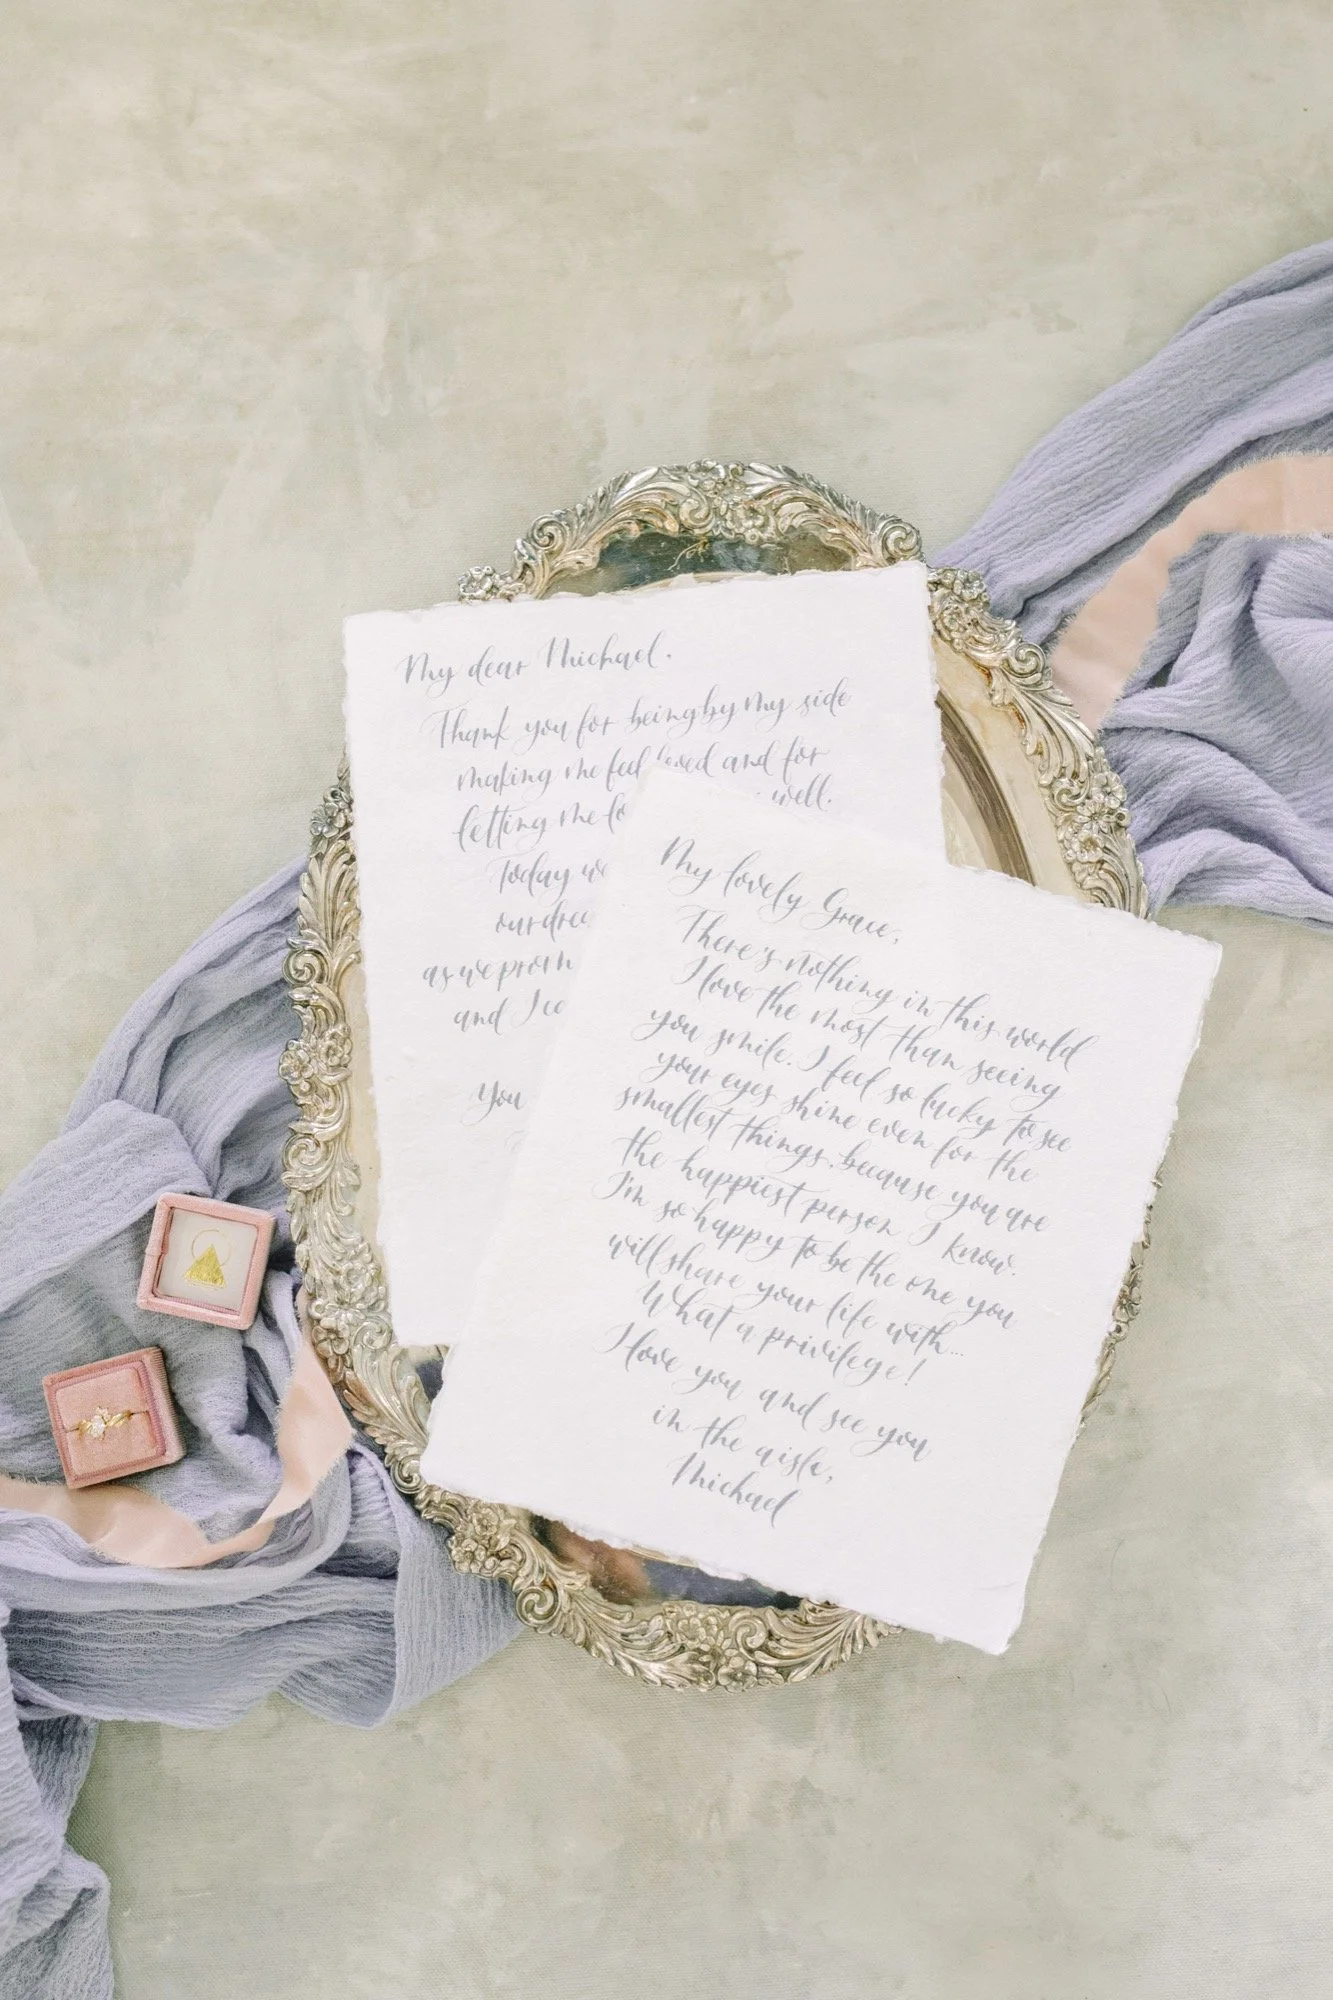 My dear Michael,
Thank you for being by my side
making me feel loved and for
letting me lo well.
Today we
our drea
as we prom
and I ca
You
My lovely Grace,
There's nothing in this world
I love the most than seeing
you smile. I feel so lucky to see
your eyes shine even for the
smallest things, because you are
the happiest person I know.
I'm so happy to be the one you
will share your life with...
What a privilege!
I love you and see you
in the aisle,
Michael